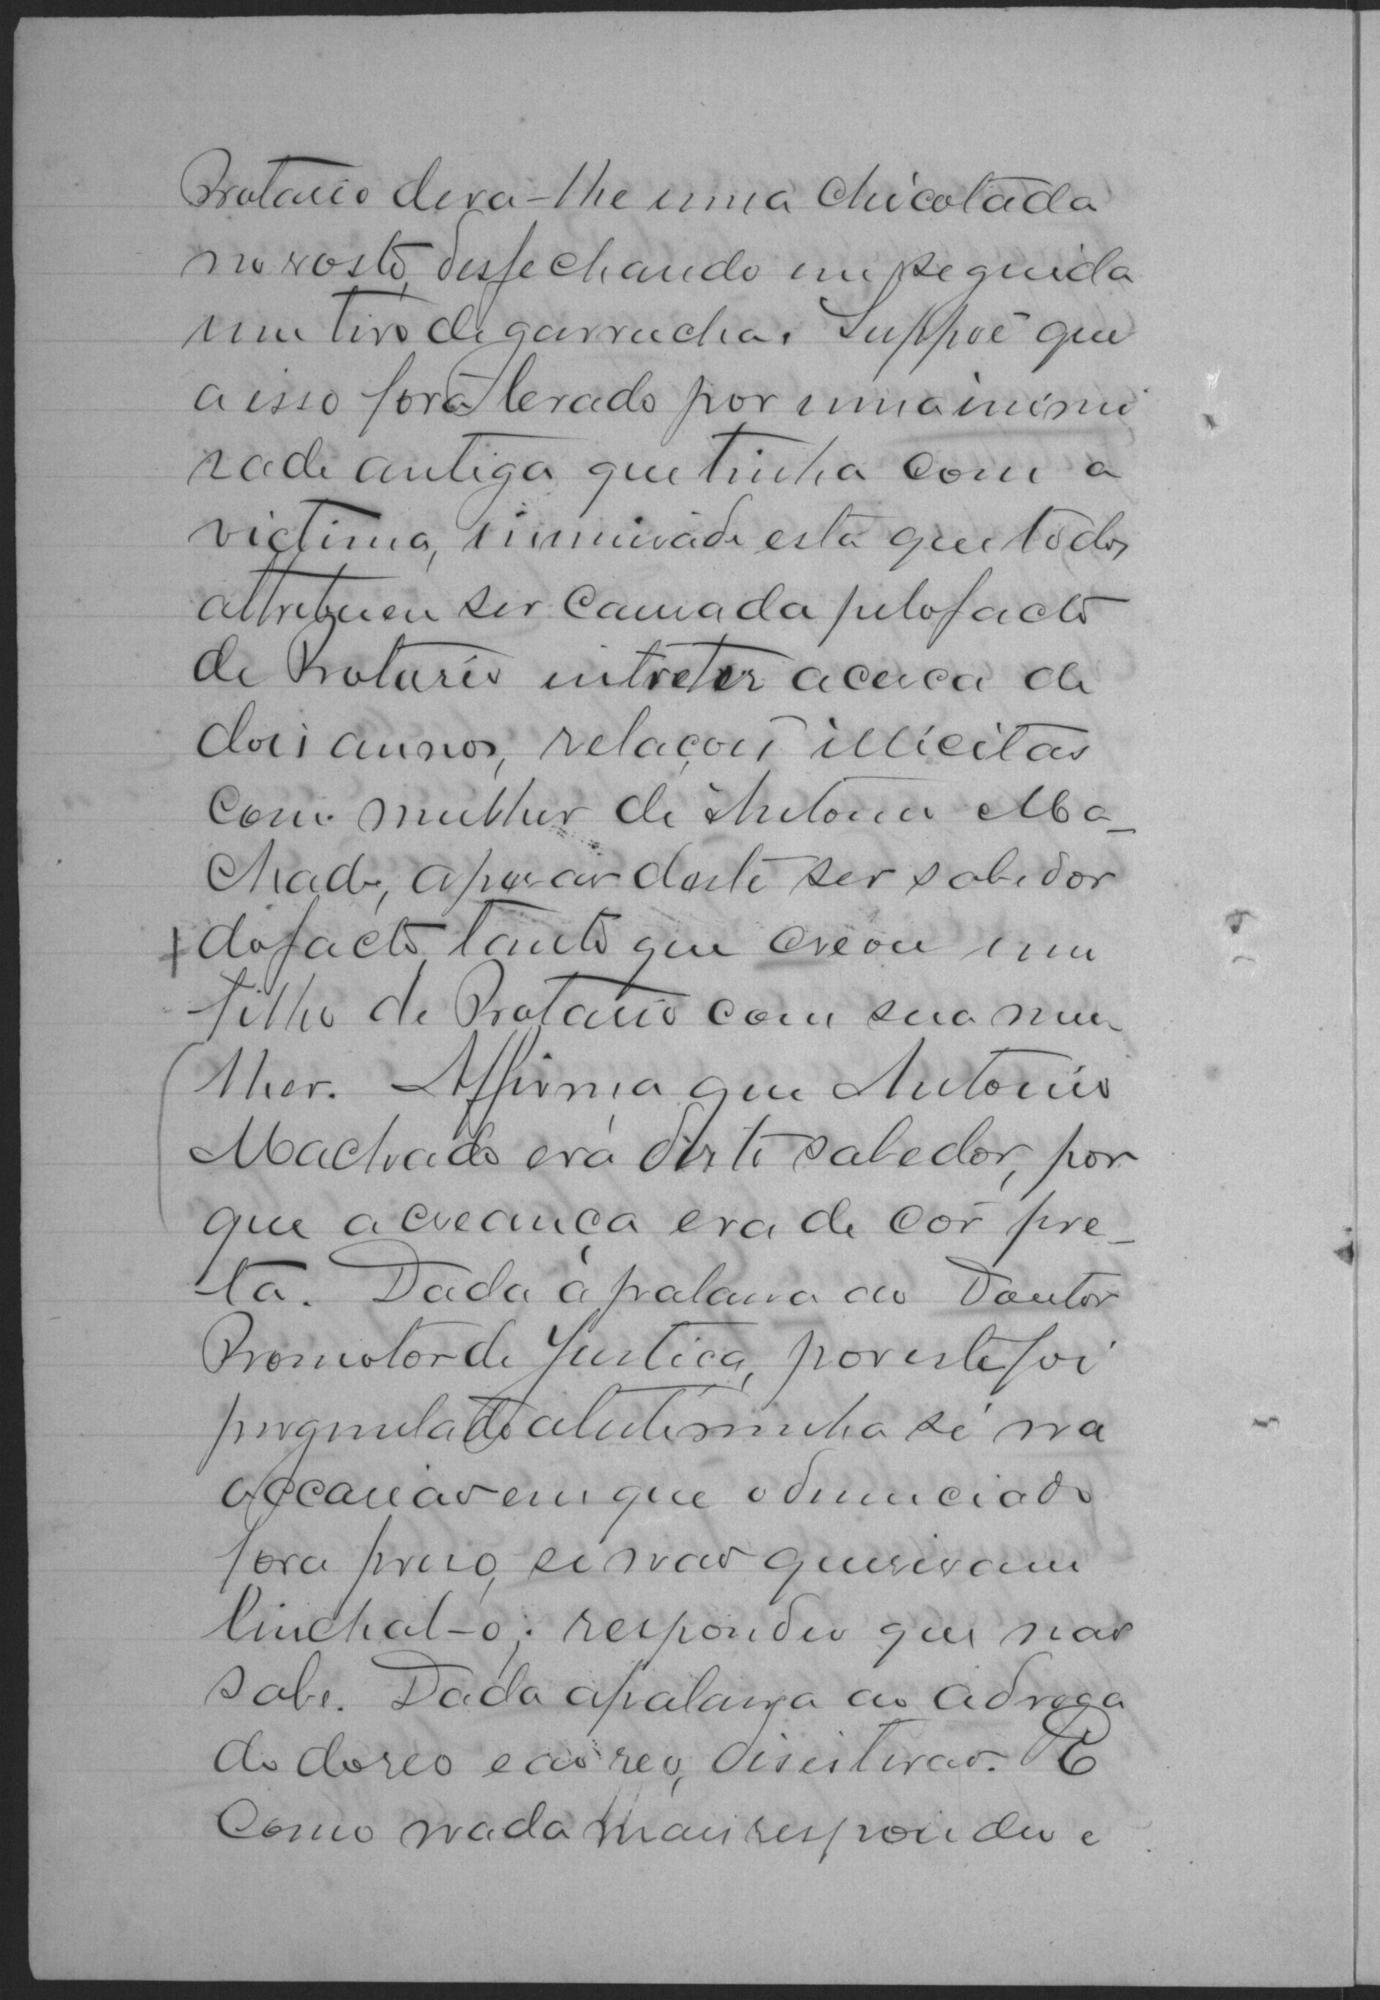 Protasio dera-lhe uma chicotada
no rosto, desfechando em seguida
um tiro de garrucha. Suppoe que
a isso fora levado por uma inimi
zade antiga que tinha com a
victima, inimizade esta que todos
attribuem ser causada pelo facto
de Protasio entreter acerca de
dois annos, relações illicitas
com mulher de Antonio Ma_
chado, apezar deste ser sabedor
do facto, tanto que creou um
filho de Protasio com sua mu
lher. Affirma que Antonio
Machado era disto sabedor, por
que a creança era de côr pre_
ta. Dada a palavra ao Doutor
Promotor de Justiça, por este foi
perguntado a testeminha se na
occasião em que o denunciado
fora preso, se não quiseram
linchal-o; respondeu que não
sabe. Dada a palavra ao advoga
do do reo e ao reo, disistirão. E
como nada mais respondeu e